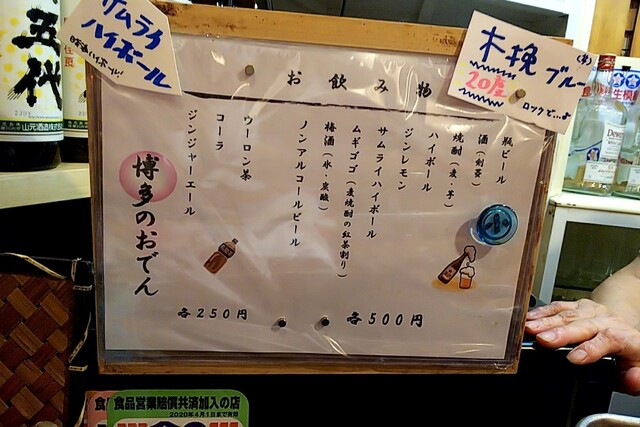 サムライ
ハイボール
木挽ブルー
(芋)
20度
ロックで…♪
お飲み物
瓶ビール
酒(剣菱)
焼酎(麦・芋)
ハイボール
ジンレモン
サムライハイボール
ムギゴゴ(麦焼酎の紅茶割り)
梅酒(水・炭酸)
ノンアルコールビール
ウーロン茶
コーラ
ジンジャーエール
博多のおでん
各500円
各250円
五代
山元酒造株式
食品営業賠償共済加入の店
2020年4月1日まで有効
Dewar's